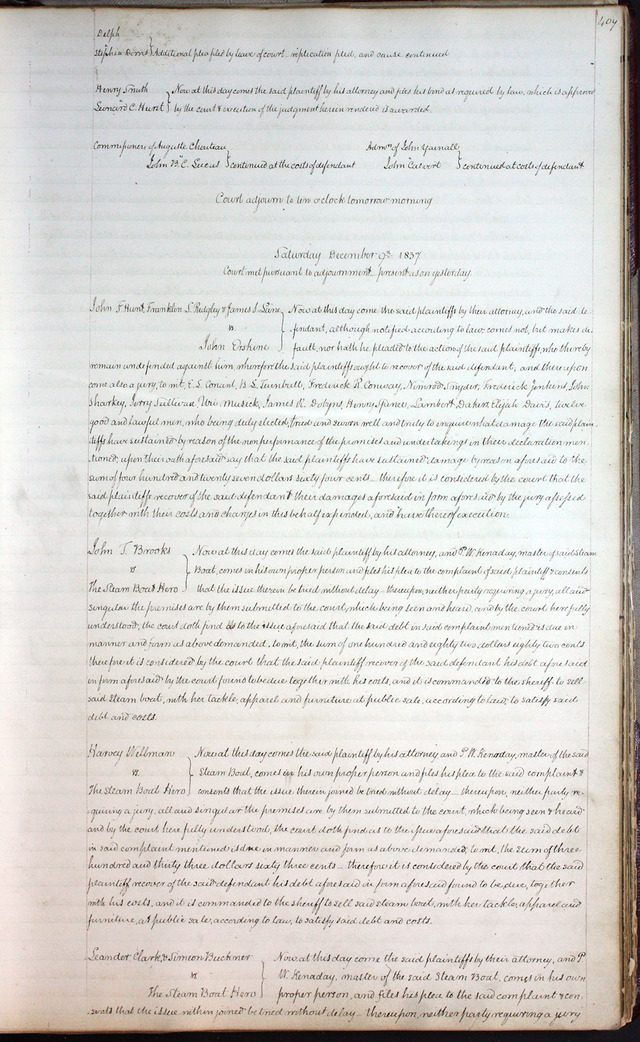 407
Delph
Stephen Dorris } Additional plea pled by leave of court replication pled, and cause continued
Henry Smith } Now at this day comes the said plaintiff by his attorney and files his bond as required by law, which is approved
Leonard C. Hurst } by the court & execution of the judgment herein rendered is awarded.
Commissioners of Auguste Chouteau
John B. C. Lucas } continued at the costs of defendant
Admrs of John Yarnall
John Calvert } continued at costs of defendant
Court adjourn to ten o'clock tomorrow morning
Saturday December 9th 1837
Court met pursuant to adjournment present as on yesterday.
John F Hunt, Franklin L. Ridgley & James S. Lane } Now at this day come the said plaintiffs by their attorney, and the said de-
vs. } fendant, although notified according to law, comes not, but makes de-
John Erskine } fault, nor hath he pleaded to the action of the said plaintiffs, who thereby
remain undefended against him, wherefore the said plaintiffs ought to recover of the said defendant, and thereupon
come also a jury, to wit, E. S. Conant, B. L. Turnbull, Frederick R. Conway, Nimrod Snyder, Frederick Jenkins, John
Sharkey, Jerry Sullivan, Uri Musick, James R. Dobyns, Henry Spines, Lambert Daker, Elijah Davis, twelve
good and lawful men, who being duly elected, tried and sworn well and truly to enquire what damage the said plain-
tiffs have sustained by reason of the non performance of the promises and undertakings in their declaration men-
tioned, upon their oath aforesaid say that the said plaintiffs have sustained damage by reason aforesaid to the
sum of four hundred and twenty seven dollars sixty four cents — therefore it is considered by the court that the
said plaintiffs recover of the said defendant their damages aforesaid in form aforesaid by the jury assessed
together with their costs and charges in this behalf expended, and have thereof execution.
John T. Brooks } Now at this day comes the said plaintiff by his attorney, and P. W. Kenaday, master of said steam
vs } Boat, comes in his own proper person and files his plea to the complaint of said plaintiff & consents
The Steam Boat Hero } that the issue therein be tried without delay — thereupon, neither party requiring a jury, all and
singular the premises are by them submitted to the court, which being seen and heard, and by the court here fully
understood, the court doth find as to the issue aforesaid that the said debt in said complaint mentioned is due in
manner and form as above demanded, to wit, the sum of one hundred and eighty two dollars eighty two cents
therefore it is considered by the court that the said plaintiff recover of the said defendant his debt aforesaid
in form aforesaid by the court found to be due together with his costs, and it is commanded to the sheriff to sell
said Steam boat, with her tackle, apparel and furniture at public sale, according to law, to satisfy said
debt and costs.
Harvey Willman } Now at this day comes the said plaintiff by his attorney and P. W. Kenaday, master of the said
vs. } Steam Boat, comes in his own proper person and files his plea to the said complaint &
The Steam Boat Hero } consents that the issue therein joined be tried without delay — thereupon, neither party re-
quiring a jury, all and singular the premises are by them submitted to the court, which being seen & heard
and by the court here fully understood, the court doth find as to the issue aforesaid that the said debt
in said complaint mentioned is due in manner and form as above demanded, to wit, the sum of three
hundred and thirty three dollars sixty three cents — therefore it is considered by the court that the said
plaintiff recover of the said defendant his debt aforesaid in form aforesaid found to be due, together
with his costs, and it is commanded to the sheriff to sell said steam boat, with her tackle, apparel and
furniture, at public sale, according to law, to satisfy said debt and costs.
Leander Clark, & Simeon Buckner } Now at this day come the said plaintiffs by their attorney, and P
vs } W. Kenaday, master of the said Steam Boat, comes in his own
The Steam Boat Hero } proper person, and files his plea to the said complaint & con-
sents that the issue within joined be tried without delay — thereupon, neither party requiring a jury